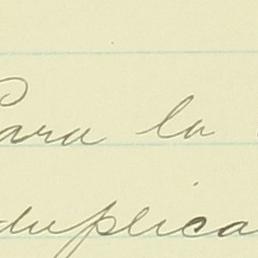 Para la
duplica